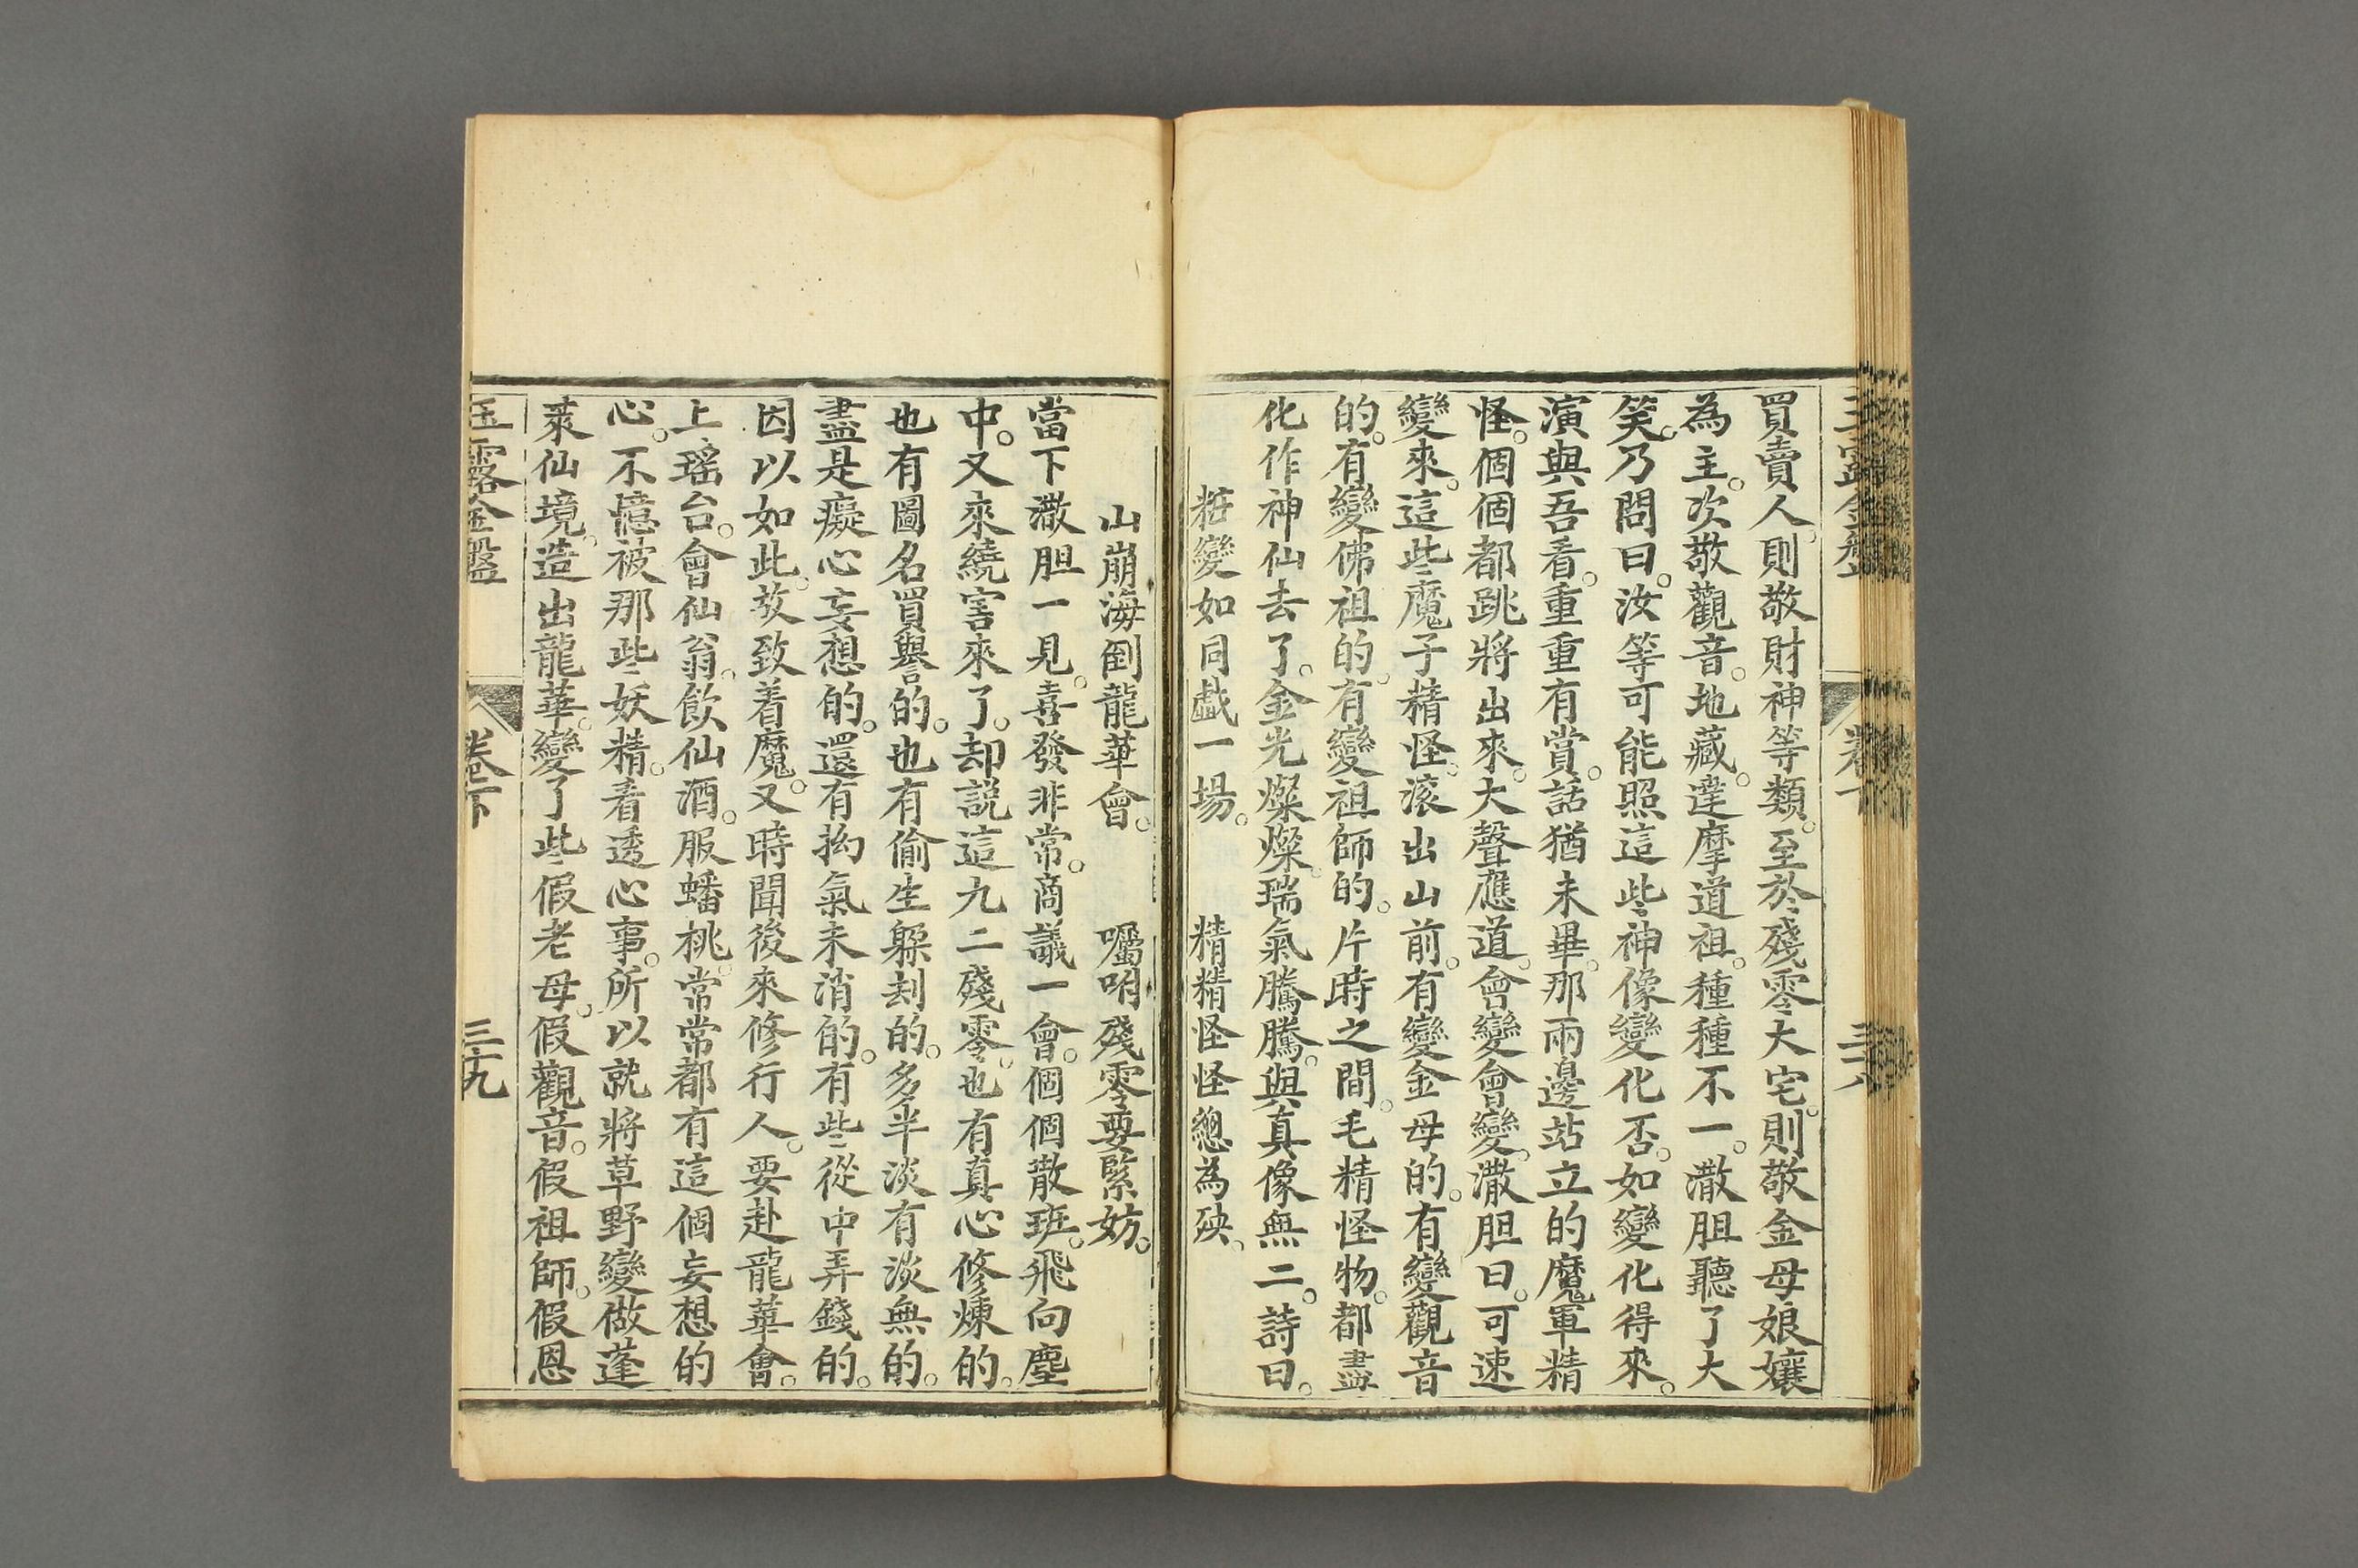 買賣人。則敬財神等類。至於殘零大宅。則敬金母娘孃
為主。次敬觀音。地藏。達摩道祖。種種不一。潵胆聽了大
笑。乃問曰。汝等可能照這些神像變化否。如變化得來。
演與吾看。重重有賞。話猶未畢。那兩邊站立的魔軍精
怪。個個都跳將出來。大聲應道。會變會變。潵胆曰。可速
變來。這些魔子精怪。滚出山前。有變金母的。有變觀音
的。有變佛祖的。有變祖師的。片時之間。毛精怪物。都盡
化作神仙去了。金光燦燦。瑞氣騰騰。與真像無二。詩曰。
粧變如同戱一場。　精精怪怪總為殃。
山崩海倒龍華會。　囑咐殘零要緊妨。
當下潵胆一見。喜發非常。商議一會。個個散班。飛向塵
中。又來繞害來了。却説這九二殘零。也有真心修煉的。
也有圖名買譽的。也有偷生躲刦的。多半淡有淡無的。
盡是癡心妄想的。還有拗氣未消的。有些從中弄錢的。
因以如此。故致着魔。又時聞後來修行人。要赴龍華會。
上瑤台。會仙翁。飲仙酒。服蟠桃。常常都有這個妄想的
心。不憶被那些妖精。看透心事。所以就將草野變做蓬
萊仙境。造出龍華。變了些假老母。假觀音。假祖師。假恩
玉露金盤　卷下　三十九